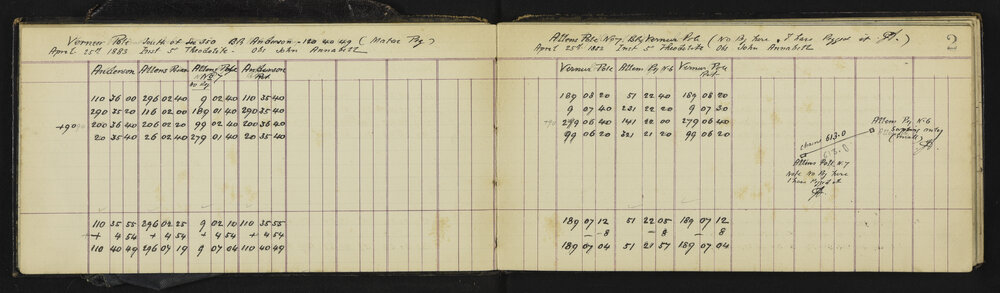 Vernier Pole South of Sec 350 Brg Anderson - 110 40 49 (Mator Peg)
April 25th 1883 Inst 5" Theodolite - Obs John Annabell
Anderson Allens Allens Pole Anderson
No 7
No Peg
110 36 00 296 02 40 9 02 40 110 35 40
290 35 20 116 02 00 189 01 40 290 35 40
+90 200 36 40 206 02 20 99 02 40 200 35 40
20 35 40 26 02 40 279 01 40 20 35 40
110 35 55 296 02 25 9 02 10 110 35 55
+ 4 54 + 4 54 + 4 54 + 4 54
110 40 49 296 07 19 9 07 04 110 40 49
Allens Pole No 7. Brg Vernier Pole (No Peg here. I have Pegged it)
2
April 25th 1883 Inst 5" Theodolite Obs John Annabell
Vernier Pole Allens Peg No 6 Vernier Pole
189 08 20 51 22 40 189 08 20
9 07 40 231 22 20 9 07 30
+90 279 06 40 141 22 00 279 06 40
99 06 20 321 21 20 99 06 20
Allens Peg No 6
(small)
chains 613.0
613.0
Allens Pole No 7
Note No Peg here
I have Pegged it
189 07 12 51 22 05 189 07 12
— 8 — 8 — 8
189 07 04 51 21 57 189 07 04